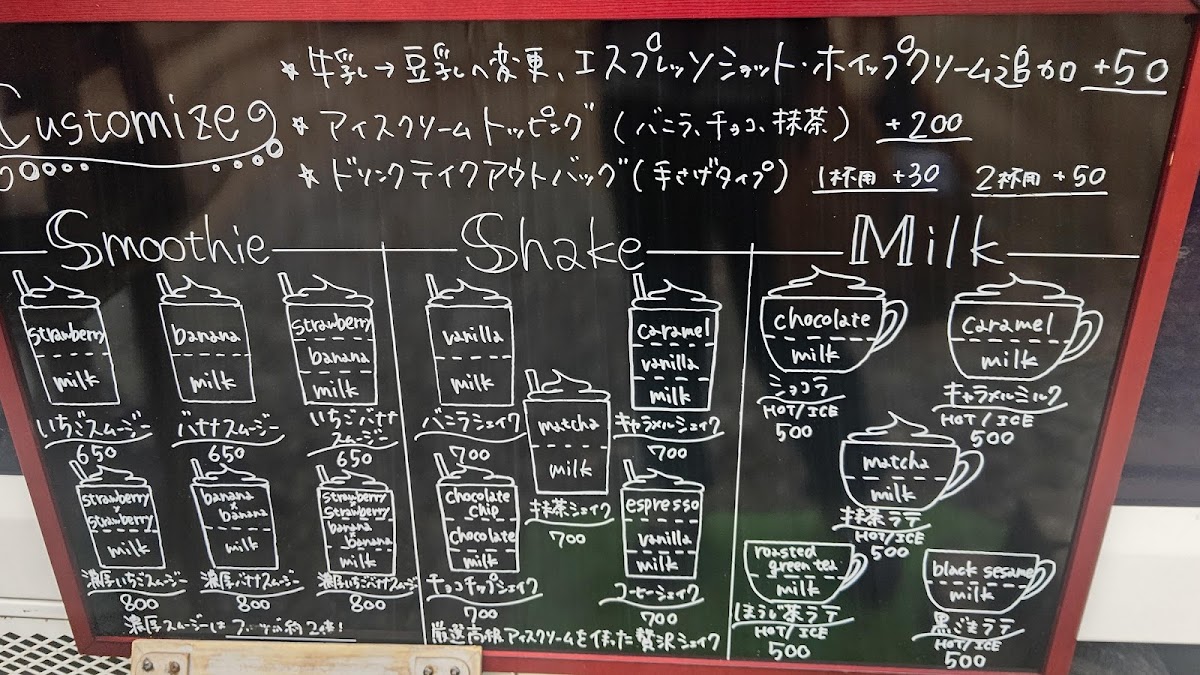 Customize
★ 牛乳→豆乳へ変更、エスプレッソショット・ホイップクリーム追加 +50
★ アイスクリームトッピング (バニラ、チョコ、抹茶) +200
★ ドリンクテイクアウトバッグ (手さげタイプ) 1杯用 +30 2杯用 +50
Smoothie
strawberry
milk
いちごスムージー
650
banana
milk
バナナスムージー
650
strawberry
banana
milk
いちごバナナ
スムージー
650
strawberry
×
strawberry
milk
濃厚いちごスムージー
800
banana
×
banana
milk
濃厚バナナスムージー
800
strawberry
×
strawberry
banana
×
banana
milk
濃厚いちごバナナスムージー
800
濃厚スムージーはフルーツが約2倍!
Shake
vanilla
milk
バニラシェイク
700
caramel
vanilla
milk
キャラメルシェイク
700
matcha
milk
抹茶シェイク
700
chocolate
chip
chocolate
milk
チョコチップシェイク
700
espresso
vanilla
milk
コーヒーシェイク
700
厳選高級アイスクリームを使った贅沢シェイク
Milk
chocolate
milk
ショコラ
HOT/ICE
500
caramel
milk
キャラメルミルク
HOT/ICE
500
matcha
milk
抹茶ラテ
HOT/ICE
500
roasted
green tea
milk
ほうじ茶ラテ
HOT/ICE
500
black sesame
milk
黒ごまラテ
HOT/ICE
500